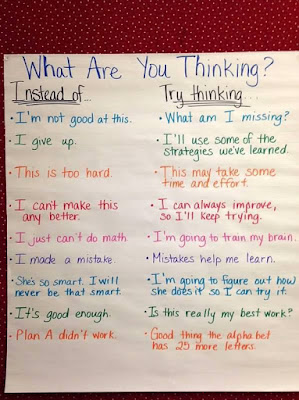 What Are You Thinking?
Instead of... Try thinking...
• I'm not good at this. • What am I missing?
• I give up. • I'll use some of the
strategies we've learned.
• This is too hard. • This may take some
time and effort.
• I can't make this • I can always improve,
any better. so I'll keep trying.
• I just can't do math. • I'm going to train my brain.
• I made a mistake. • Mistakes help me learn.
• She's so smart. I will • I'm going to figure out how
never be that smart. she does it so I can try it.
• It's good enough. • Is this really my best work?
• Plan A didn't work. • Good thing the alphabet
has 25 more letters.